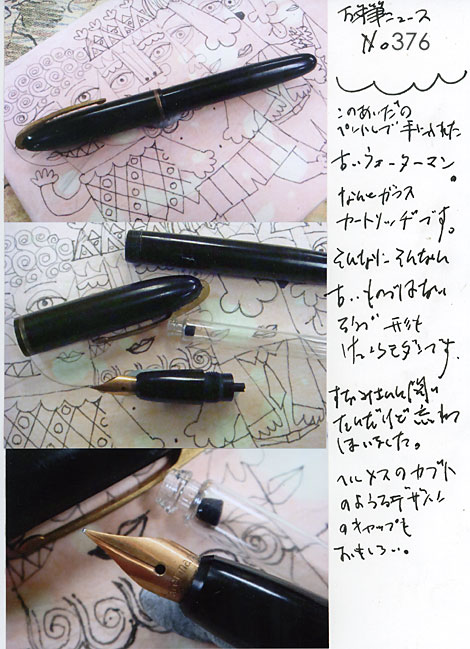 万年筆ニュース
No 376
このあいだの
ペントレで手に入れた
古いウォーターマン。
なんとガラス
カートリッヂです。
そんなに そんなに
古いものではない
形も
けっこうモダンです。
すなみさんに聞い
たんだけど忘れて
しまいました。
ヘルメスのカブト
のようなデザイン
のキャップも
おもしろい。